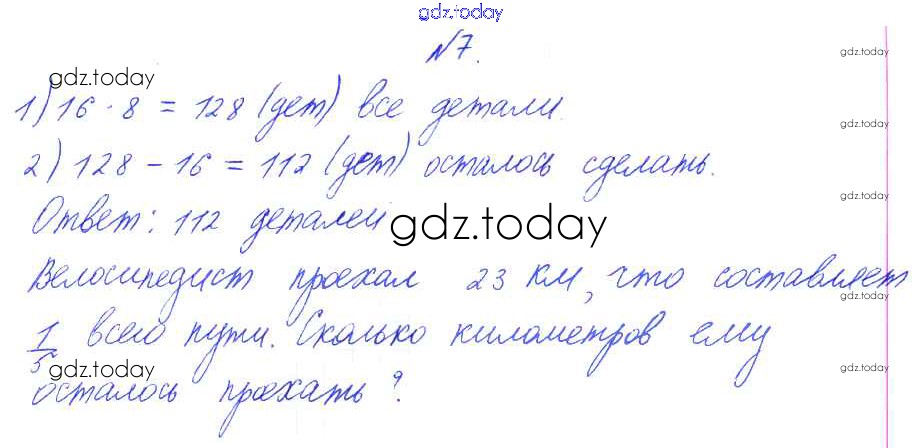 gdz.today
№7.
gdz.today
gdz.today
1) 16 · 8 = 128 (дет) все детали.
gdz.today
2) 128 - 16 = 112 (дет) осталось сделать.
gdz.today
Ответ: 112 деталей
gdz.today
Велосипедист проехал 23 км, что составляет
gdz.today
1/5 всего пути. Сколько километров ему
gdz.today
gdz.today
осталось проехать?